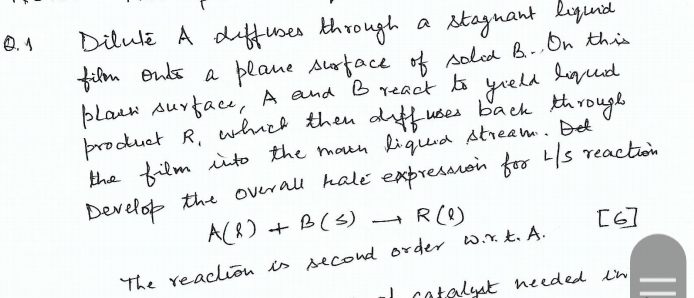 Q.1 Dilute A diffuses through a stagnant liquid
film onto a plane surface of solid B. On this
plane surface, A and B react to yield liquid
product R, which then diffuses back through
the film into the main liquid stream. Del
Develop the overall rate expression for L/S reaction
A(l) + B(s) → R(l) [6]
The reaction is second order w.r.t. A.
catalyst needed in